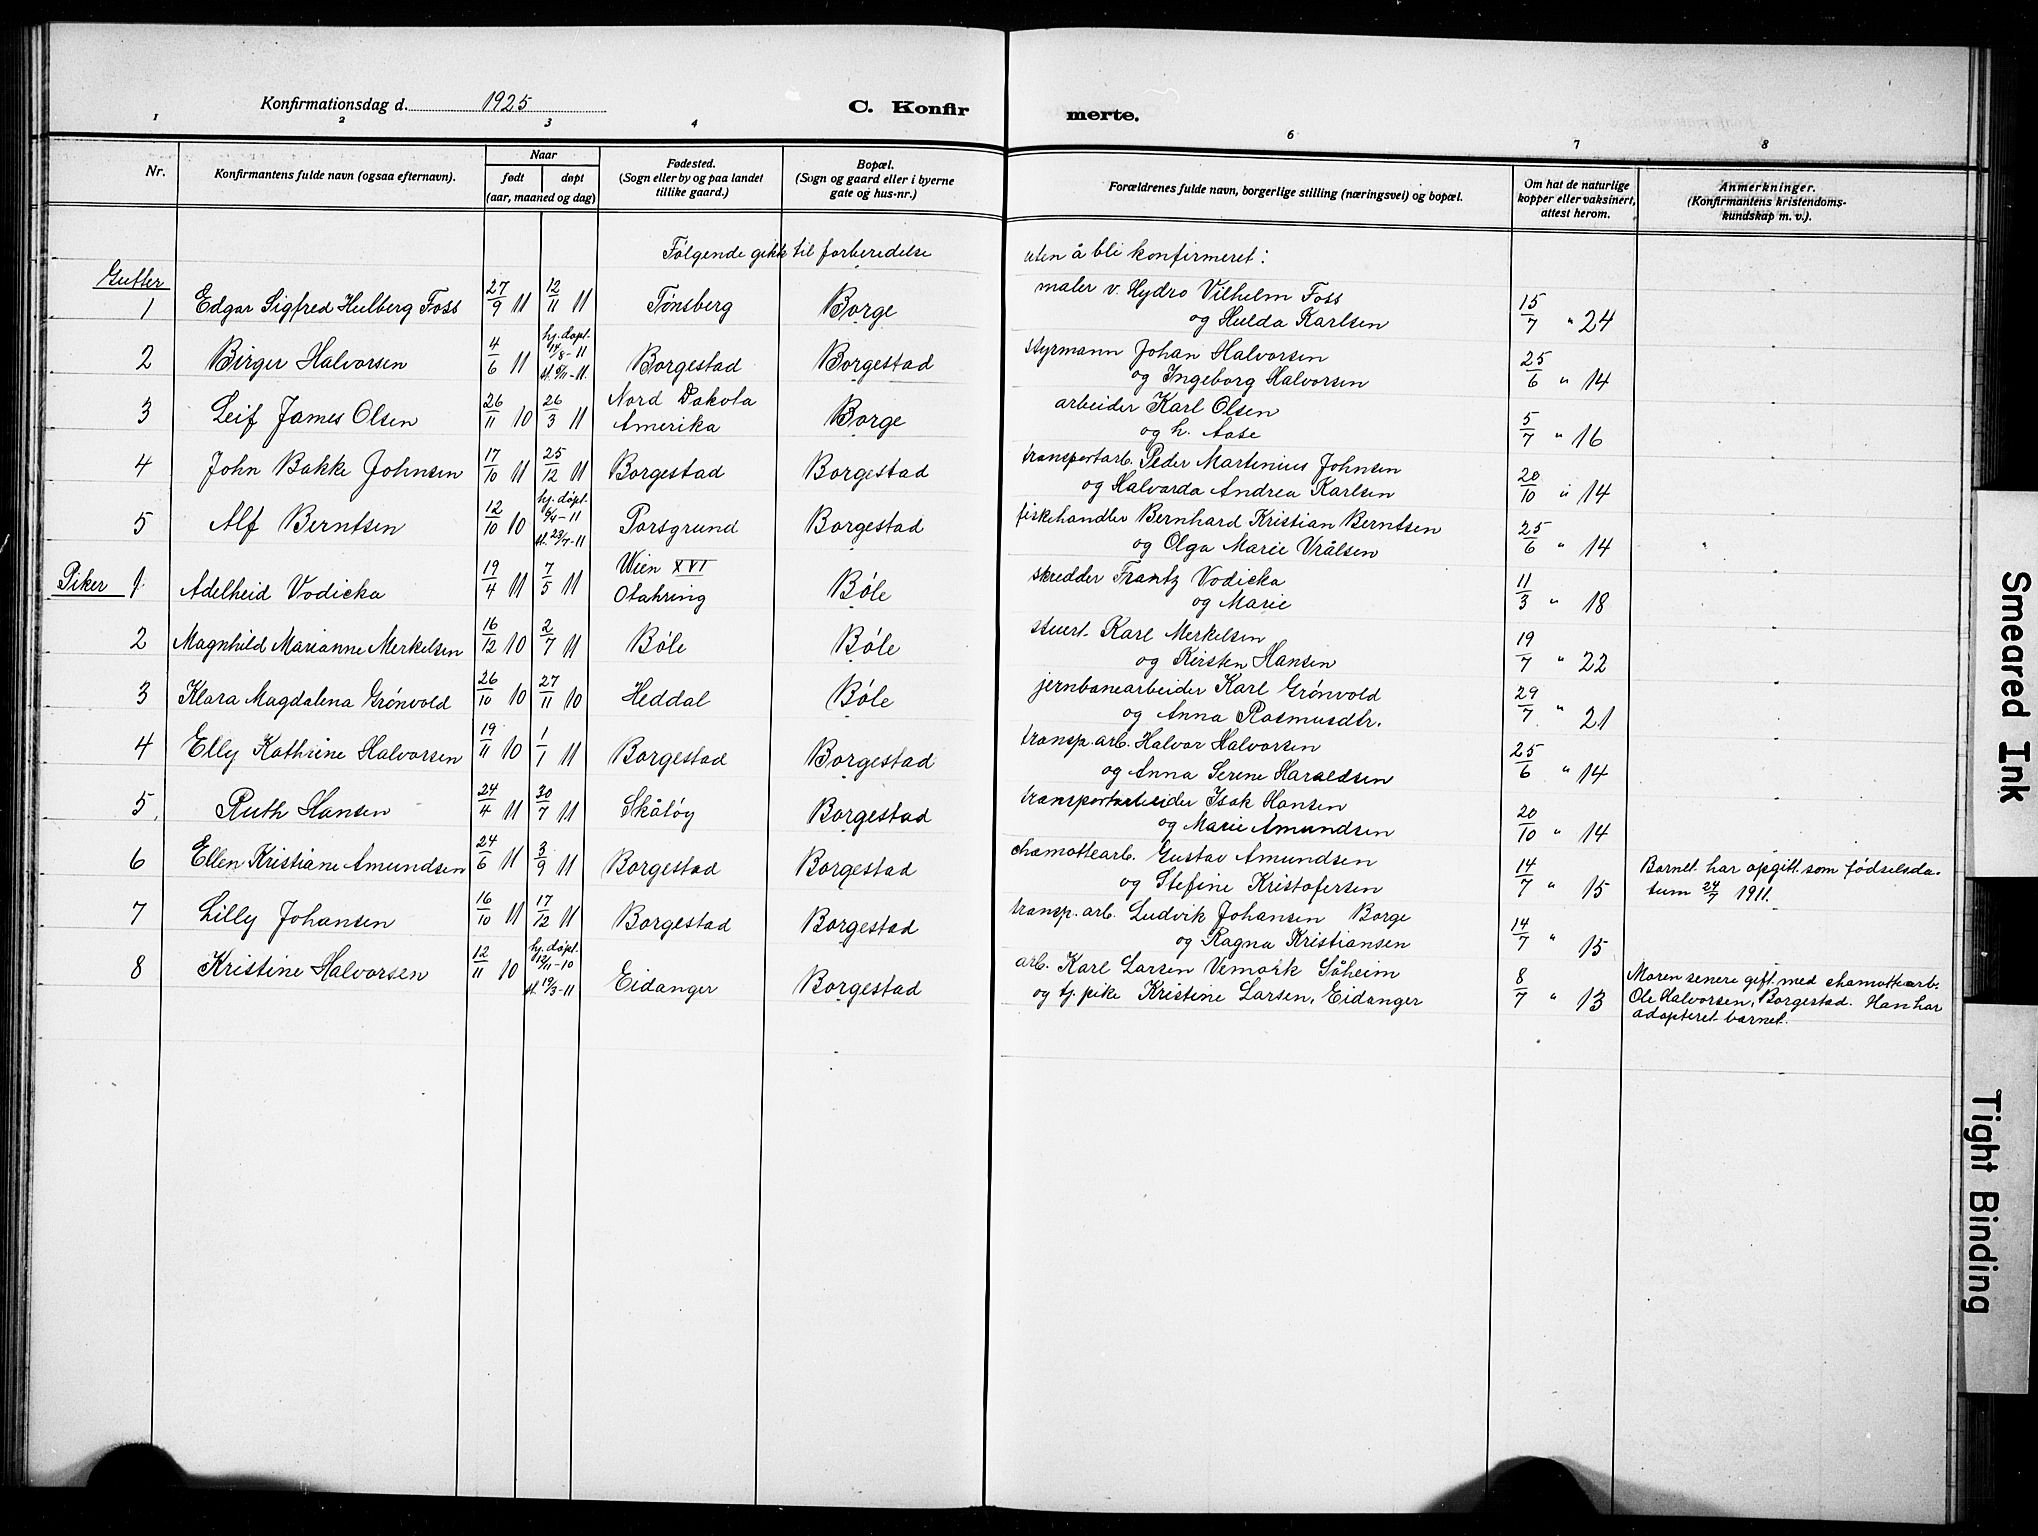 Konfirmationsdag d. 1925
C. Konfirmerte.
1 2 3 4 6 7 8
Nr.
Konfirmantens fulde navn (ogsaa efternavn).
Naar
født døpt
(aar, maaned og dag)
Fødested.
(Sogn eller by og paa landet
tillike gaard.)
Bopæl.
(Sogn og gaard eller i byerne
gate og hus-nr.)
Forældrenes fulde navn, borgerlige stilling (næringsvei) og bopæl.
Om hat de naturlige
kopper eller vaksinert,
attest herom.
Anmerkninger.
(Konfirmantens kristendoms-
kundskap m. v.).
Følgende gikk til forberedelse uten å bli konfirmeret:
Gutter
1 Edgar Sigfred Heilberg Foss 27/9 11 12/11 11 Tønsberg Borge maler v. Hydro Vilhelm Foss
og Hulda Karlsen 15/7 " 24
2 Birger Halvorsen 4/6 11 hj. døpt 14/8-11 st. 5/11-11. Borgestad Borgestad styrmann Johan Halvorsen
og Ingeborg Halvorsen 25/6 " 14
3 Leif James Olsen 26/11 10 26/3 11 Nord Dakota Amerika Borge arbeider Karl Olsen
og h. Aase 5/7 " 16
4 John Bakke Johnsen 17/10 11 25/12 11 Borgestad Borgestad transportarb. Peder Martinius Johnsen
og Halvarda Andrea Karlsen 20/10 " 14
5 Alf Berntsen 12/10 10 hj. døpt 9/4-11 st. 23/7-11 Porsgrund Borgestad fiskehandler Bernhard Kristian Berntsen
og Olga Marie Vrålsen 25/6 " 14
Piker
1 Adelheid Vodicka 19/4 11 7/5 11 Wien XVI Otahring Bøle skredder Frantz Vodicka
og Marie 11/3 " 18
2 Magnhild Marianne Merkelsen 16/12 10 2/7 11 Bøle Bøle stuert Karl Merkelsen
og Kirsten Hansen 19/7 " 22
3 Klara Magdalena Grønvold 26/10 10 27/11 10 Heddal Bøle jernbanearbeider Karl Grønvold
og Anna Rasmusdtr. 29/7 " 21
4 Elly Kathrine Halvorsen 19/11 10 1/1 11 Borgestad Borgestad transp. arb. Halvor Halvorsen
og Anna Serene Haraldsen 25/6 " 14
5 Ruth Hansen 24/4 11 30/7 11 Skåtøy Borgestad transportarbeider Isak Hansen
og Marie Amundsen 20/10 " 14
6 Ellen Kristiane Amundsen 24/6 11 3/9 11 Borgestad Borgestad chamottearb. Gustav Amundsen
og Stefine Kristofersen 14/7 " 15 Barnet har opgitt som fødselsda-
tum 24/7 1911.
7 Lilly Johansen 16/10 11 17/12 11 Borgestad Borgestad transp. arb. Ludvik Johansen Borge
og Ragna Kristiansen 14/7 " 15
8 Kristine Halvorsen 12/11 10 hj. døpt 12/11-10 st. 19/3-11 Eidanger Borgestad arb. Karl Larsen Vemork Såheim
og tj. pike Kristine Larsen, Eidanger 8/7 " 13 Moren senere gift med chamottearb.
Ole Halvorsen, Borgestad. Han har
adopteret barnet.
Smeared Ink
Tight Binding